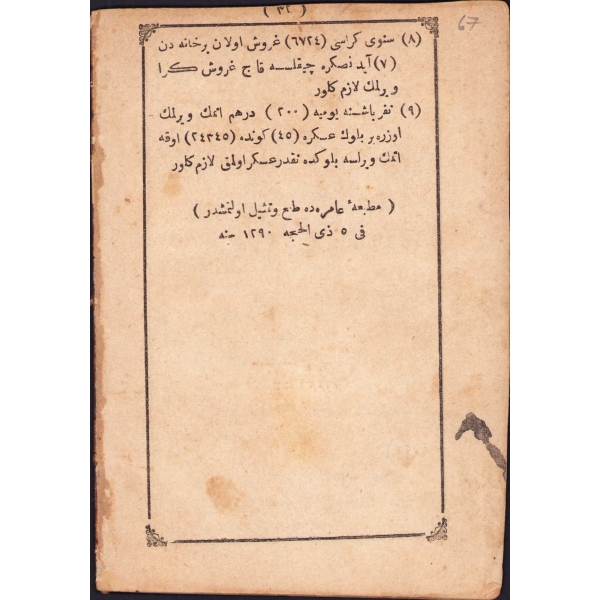 ( ٣٤ )
67
(٨) سنوی کراسی (٦٧٢٤) غروش اولان برخانه دن
(٧) آیدنصکره چیقلسه قاج غروش کرا
ویرلمك لازم کلور
(٩) نفر باشنه یومیه (٢٠٠) درهم اتمك ویرلمك
اوزره بر بلوك عسکره (٤٥) کونده (٢٤٣٤٥) اوقه
اتمك ویراسه بلوکده نقدر عسکر اولمق لازم کلور
( مطبعهٔ عامره ده طبع وتمثیل اولنمشدر )
فی ٥ ذی الحجه ١٢٩٠ سنه